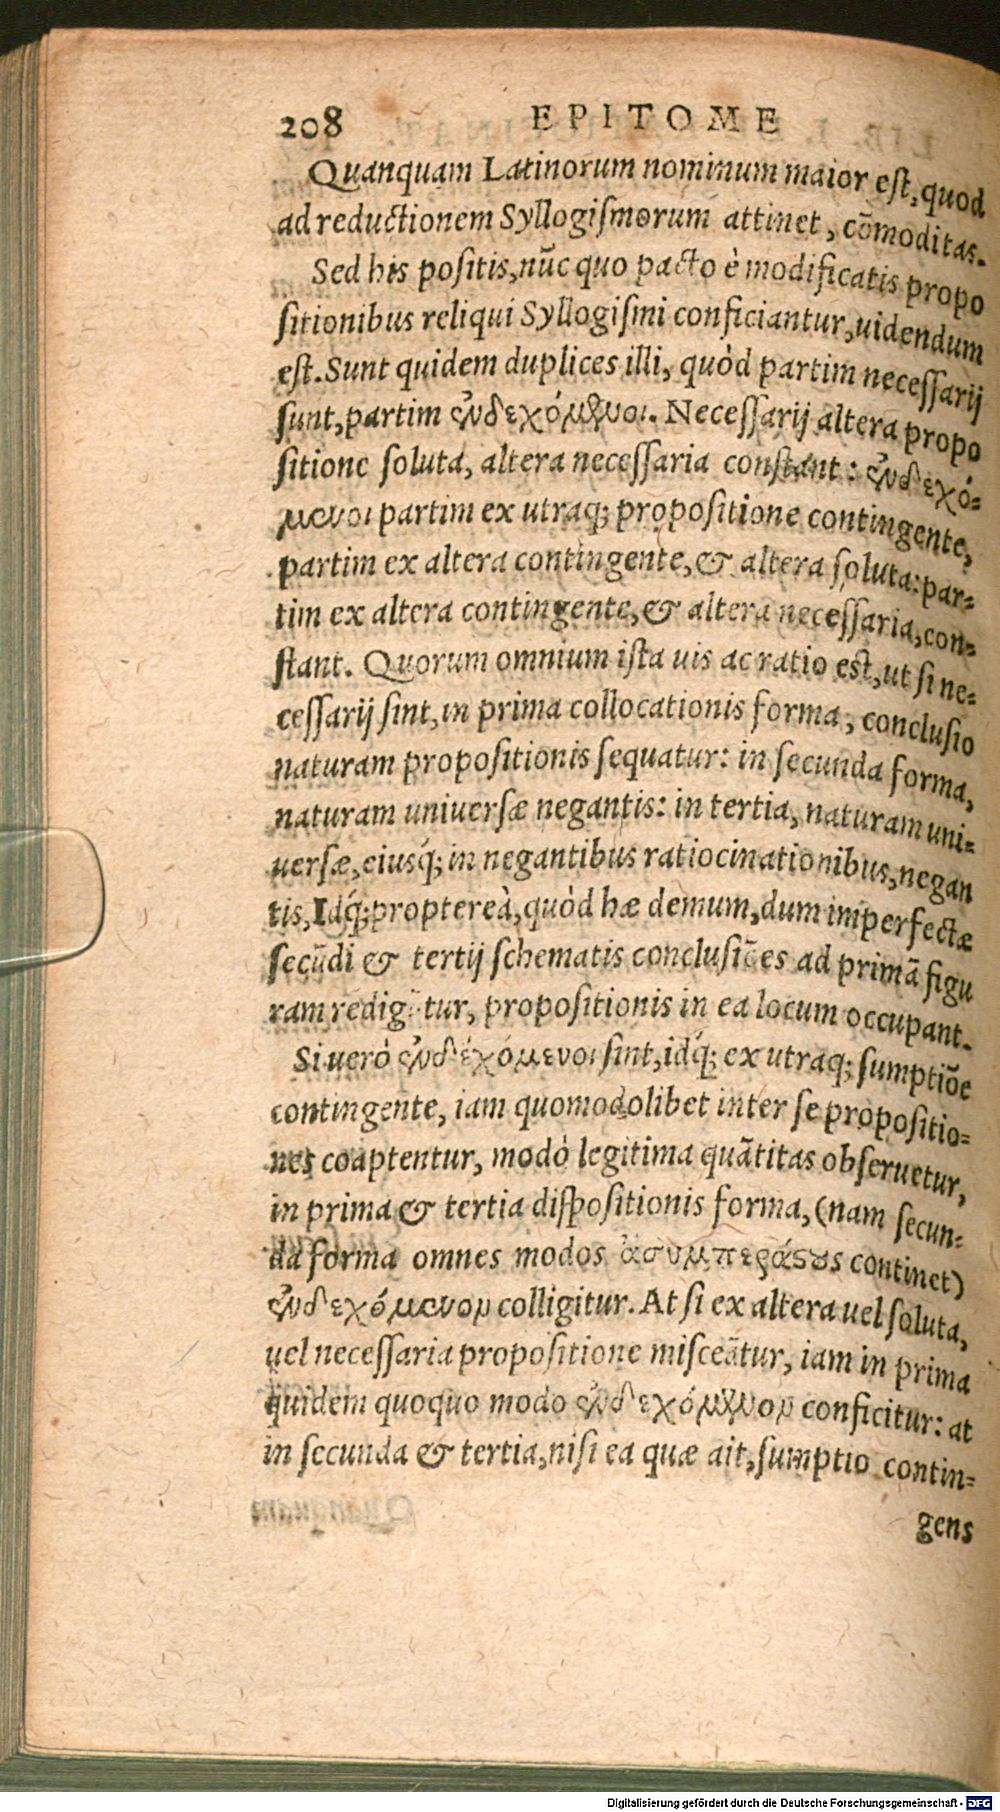 208 EPITOME
Quanquam Latinorum nominum maior eſt, quod
ad reductionem Syllogiſmorum attinet, cōmoditas.
Sed his poſitis, nūc quo pacto è modificatis propo
ſitionibus reliqui Syllogiſmi conficiantur, uidendum
eſt. Sunt quidem duplices illi, quòd partim neceſſarij
ſunt, partim ἐνδεχόμενοι. Neceſſarij altera propo
ſitione ſoluta, altera neceſſaria conſtant: ἐνδεχό-
μενοι partim ex utraq; propoſitione contingente,
partim ex altera contingente, & altera ſoluta: par-
tim ex altera contingente, & altera neceſſaria, con-
ſtant. Quorum omnium iſta uis ac ratio eſt, ut ſi ne-
ceſſarij ſint, in prima collocationis forma, concluſio
naturam propoſitionis ſequatur: in ſecunda forma,
naturam uniuerſæ negantis: in tertia, naturam uni-
uerſæ, eiusq́; in negantibus ratiocinationibus, negan
tis, Idq́; propterea, quòd hæ demum, dum imperfectæ
ſecūdi & tertij ſchematis concluſiões ad primā figu
ram redigūtur, propoſitionis in ea locum occupant.
Si uerò ἐνδεχόμενοι ſint, idq́; ex utraq; ſumptiōe
contingente, iam quomodolibet inter ſe propoſitio-
nes coaptentur, modò legitima quātitas obſeruetur,
in prima & tertia diſpoſitionis forma, (nam ſecun-
da forma omnes modos ἀσυμπεράςους continet)
ἐνδεχόμενον colligitur. At ſi ex altera uel ſoluta,
uel neceſſaria propoſitione miſceātur, iam in prima
quidem quoquo modo ἐνδεχόμενον conficitur: at
in ſecunda & tertia, niſi ea quæ ait, ſumptio contin-
gens
Digitalisierung gefördert durch die Deutsche Forschungsgemeinschaft - DFG